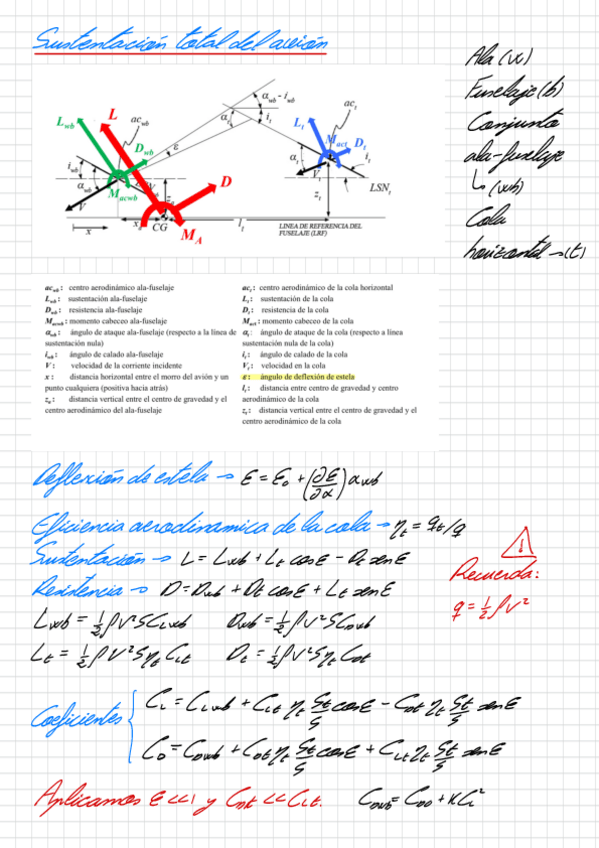 Sustentación total del avión
Ala (w)
Fuselaje (b)
Conjunto
ala-fuselaje
↳ (wb)
Cola
horizontal → (t)
α_wb - i_wb
L_wb
L
ac_wb
D_wb
ε
α_t
i_t
L_t
ac_t
M_act
D_t
i_wb
α_wb
V
M_acwb
D
α_t
V_t
i_t
z_t
LSN_t
x
CG
M_A
l_t
LINEA DE REFERENCIA DEL
FUSELAJE (LRF)
ac_wb : centro aerodinámico ala-fuselaje
L_wb : sustentación ala-fuselaje
D_wb : resistencia ala-fuselaje
M_acwb : momento cabeceo ala-fuselaje
α_wb : ángulo de ataque ala-fuselaje (respecto a la línea de
sustentación nula)
i_wb : ángulo de calado ala-fuselaje
V : velocidad de la corriente incidente
x : distancia horizontal entre el morro del avión y un
punto cualquiera (positiva hacia atrás)
z_a : distancia vertical entre el centro de gravedad y el
centro aerodinámico del ala-fuselaje
ac_t : centro aerodinámico de la cola horizontal
L_t : sustentación de la cola
D_t : resistencia de la cola
M_act : momento cabeceo de la cola
α_t : ángulo de ataque de la cola (respecto a línea
sustentación nula de la cola)
i_t : ángulo de calado de la cola
V_t : velocidad en la cola
ε : ángulo de deflexión de estela
l_t : distancia entre centro de gravedad y centro
aerodinámico de la cola
z_t : distancia vertical entre el centro de gravedad y el
centro aerodinámico de la cola
Deflexión de estela → ε = ε_0 + (∂ε/∂α) α_wb
Eficiencia aerodinamica de la cola → η_t = q_t/q
Sustentación → L = L_wb + L_t cos ε - D_t sen ε
Resistencia → D = D_wb + D_t cos ε + L_t sen ε
Recuerda:
q = 1/2 ρV²
L_wb = 1/2 ρV²S C_Lwb D_wb = 1/2 ρV²S C_Dwb
L_t = 1/2 ρV²S η_t C_Lt D_t = 1/2 ρV²S η_t C_Dt
Coeficientes
C_L = C_Lwb + C_Lt η_t S_t/S cos ε - C_Dt η_t S_t/S sen ε
C_D = C_Dwb + C_Dt η_t S_t/S cos ε + C_Lt η_t S_t/S sen ε
Aplicamos ε << 1 y C_Dt << C_Lt. C_Dwb = C_D0 + K C_L²